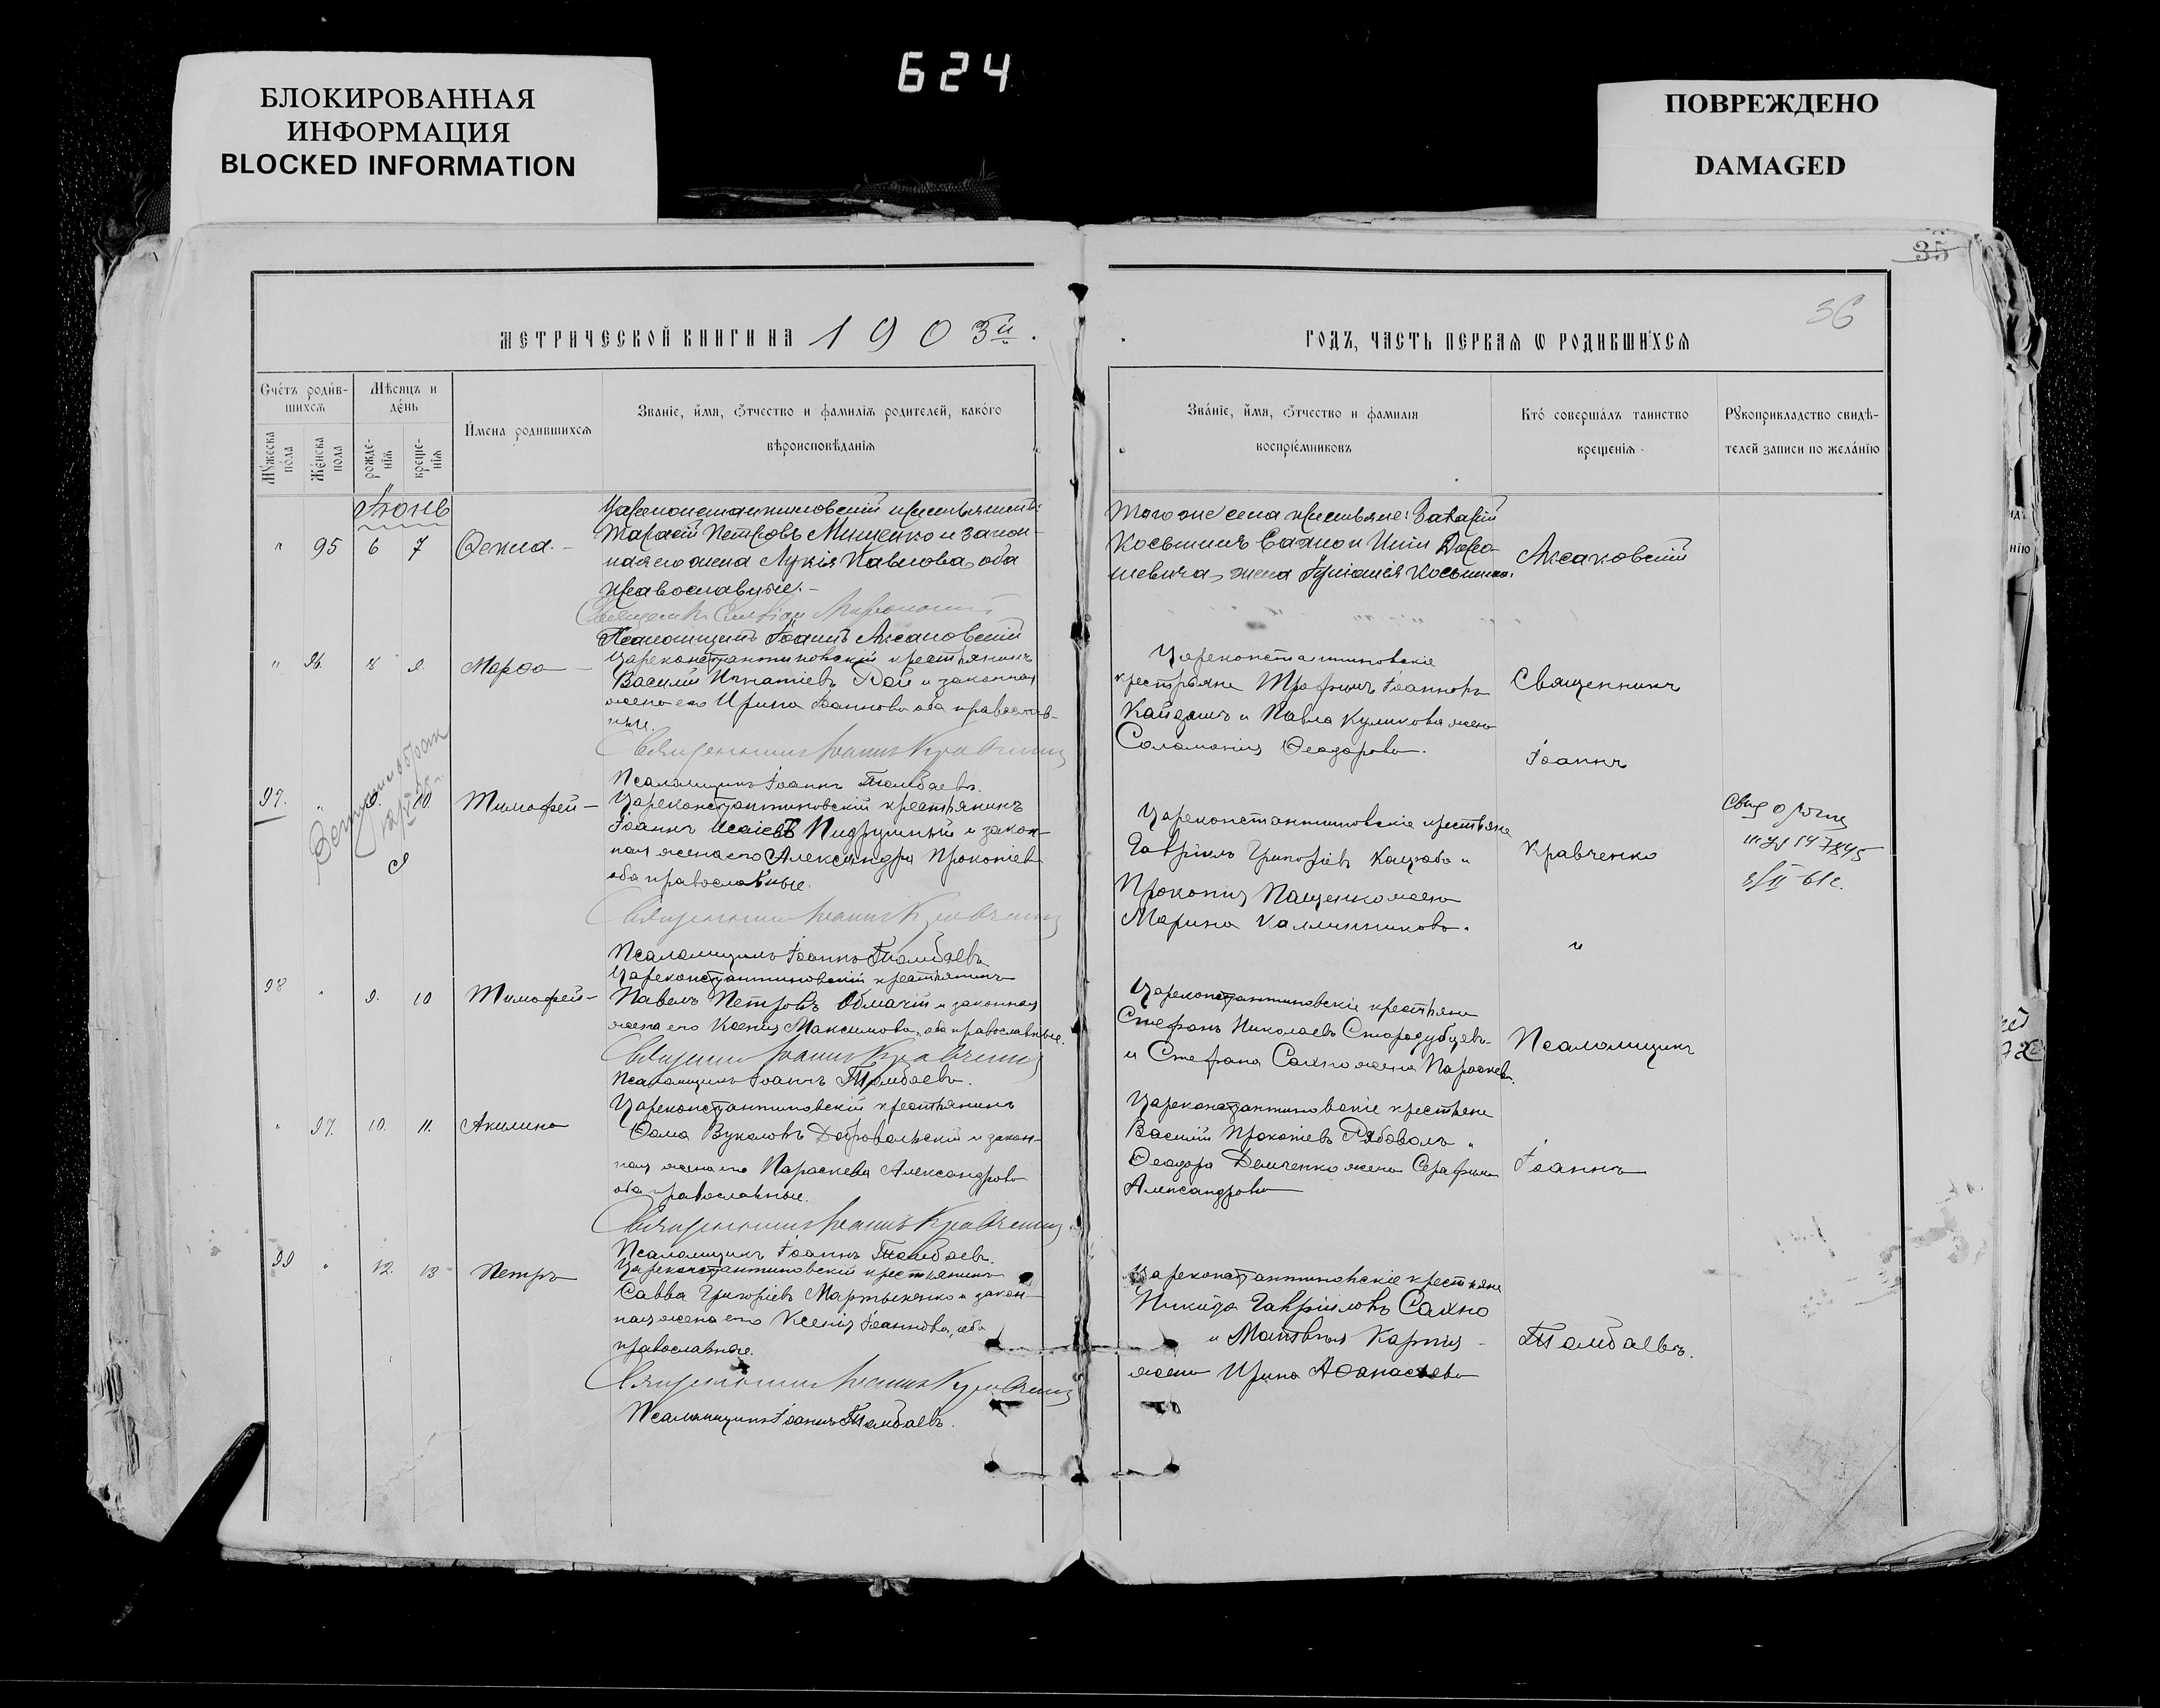 624
БЛОКИРОВАННАЯ
ИНФОРМАЦИЯ
BLOCKED INFORMATION
ПОВРЕЖДЕНО
DAMAGED
35
36
МЕТРИЧЕСКОЙ КНИГИ НА 1903й.
ГОДЪ, ЧАСТЬ ПЕРВАЯ Ѡ РОДИВШИХСЯ
Счетъ родив-
шихся
Мѣсяцъ и
день
Мужеска
пола
Женска
пола
рожде-
нія
креще-
нія
Имена родившихся
Званіе, имя, отчество и фамилія родителей, какого
вѣроисповѣданія
Званіе, имя, отчество и фамилія
воспріемниковъ
Кто совершалъ таинство
крещенія
Рукоприкладство свидѣ-
телей записи по желанію
Іюнь
" 95 6 7 Ѳекла.
Цареконстантиновскій крестьянинъ
Тарасій Петровъ Мищенко и закон-
ная его жена Лукія Павлова, оба
православные.
Псаломщикъ Іоаннъ Аксаковскій
Того же села крестьяне: Захарій
Косьминъ Сахно и
жена Косьмина.
Аксаковскій
" 96. 8 9. Марѳа
Цареконстантиновскій крестьянинъ
Василій Игнатіевъ Рой и законная
жена его Ирина Іоаннова оба православ-
ные.
Священникъ Іоаннъ Кравченко
Псаломщикъ Іоаннъ Толмбаевъ.
Цареконстантиновскіе
крестьяне Трофимъ Іоанновъ
Кайдашъ и Павла Куликова жена
Соломонія Ѳеодорова.
Священникъ
Іоаннъ
97. " 10. Тимофей
Цареконстантиновскій крестьянинъ
Іоаннъ Исаіевъ Пидрушный и закон-
ная жена его Александра Прокопіева
оба православные.
Священникъ Іоаннъ Кравченко
Псаломщикъ Іоаннъ Толмбаевъ
Цареконстантиновскіе крестьяне
Гавріилъ Григоріевъ Кацюба и
Прокопія Пащенко жена
Марина Каллиникова.
Кравченко
и
98 " 9. 10 Тимофей
Цареконстантиновскій крестьянинъ
Павелъ Петровъ Обмачій и законная
жена его Ксенія Максимова, оба православные.
Священникъ Іоаннъ Кравченко
Псаломщикъ Іоаннъ Толмбаевъ.
Цареконстантиновскіе крестьяне
Стефанъ Николаевъ Стародубцевъ
и Стефана Сахно жена Параскева.
Псаломщикъ
" 97. 10. 11. Акилина
Цареконстантиновскій крестьянинъ
Ѳома Вуколовъ Добровольскій и закон-
ная жена его Параскева Александрова
оба православные.
Священникъ Іоаннъ Кравченко
Псаломщикъ Іоаннъ Толмбаевъ.
Цареконстантиновскіе крестьяне
Василій Прокопіевъ Рябоволъ и
Ѳеодора Демченко жена Серафима
Александрова
Іоаннъ
99 " 12. 13 Петръ
Цареконстантиновскій крестьянинъ
Савва Григоріевъ Мартыненко и закон-
ная жена его Ксенія Іоаннова, оба
православные.
Священникъ Іоаннъ Кравченко
Псаломщикъ Іоаннъ Толмбаевъ.
Цареконстантиновскіе крестьяне
Никита Гавріиловъ Сахно
и Матвѣя Карпія
жена Ирина Аѳанасьева
Толмбаевъ.